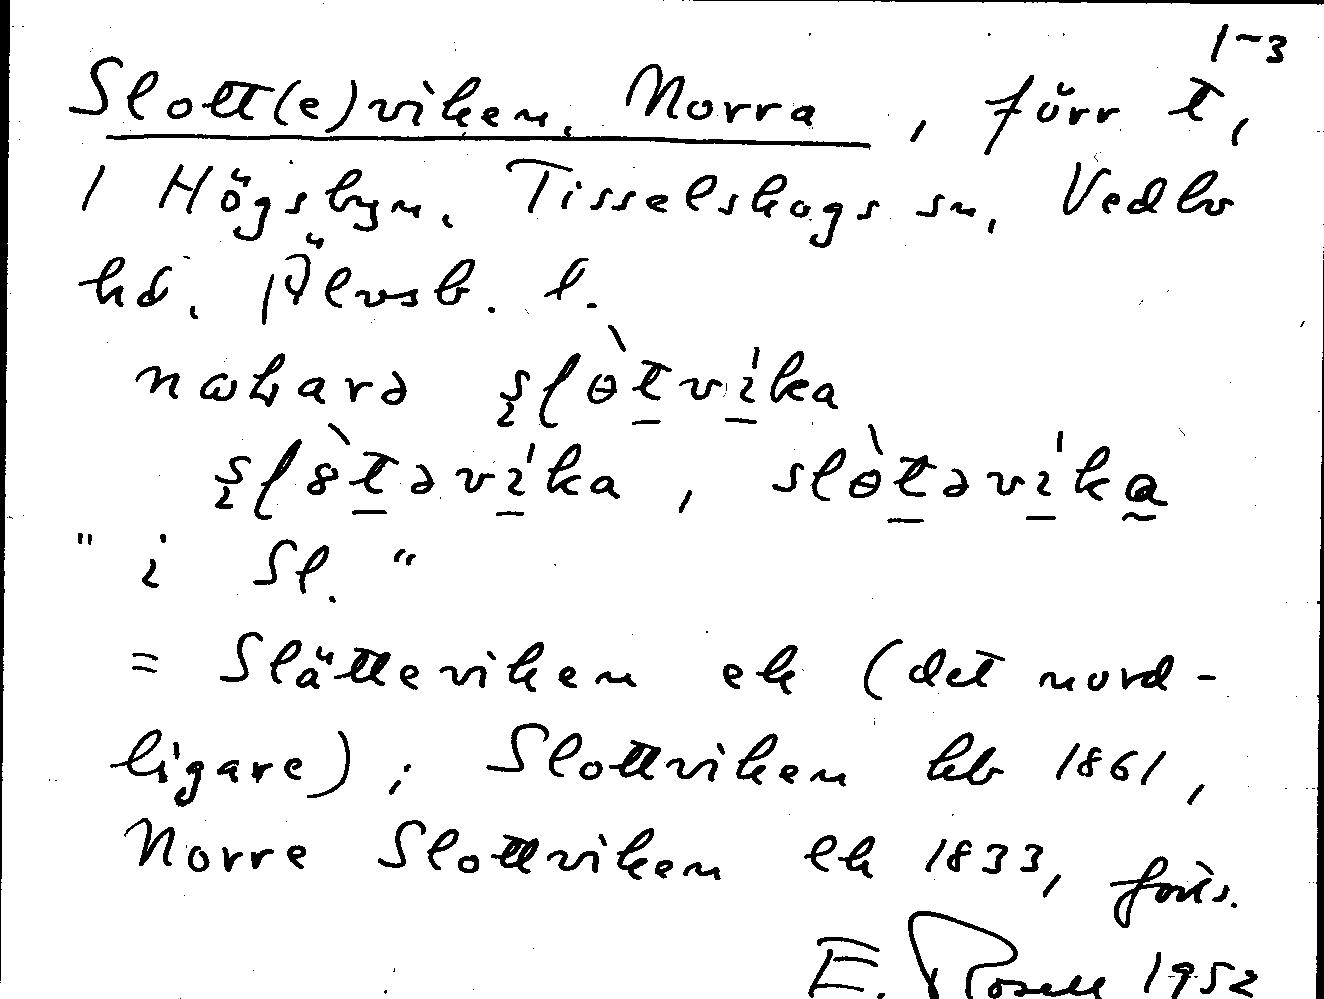 1-3
Slott(e)viken, Norra, förr t,
1 Högsbyn, Tisselskogs sn, Vedbo
hd, Älvsb. l.
nɷʜarə ʂlɵ̀tví̱ka
ʂl8̀təvíka, slɵ̀təvíka
"i Sl."
= Slätteviken ek (det nord-
ligare); Slottviken kb 1861,
Norre Slottviken lk 1833, forts.
E. Rosell 1952